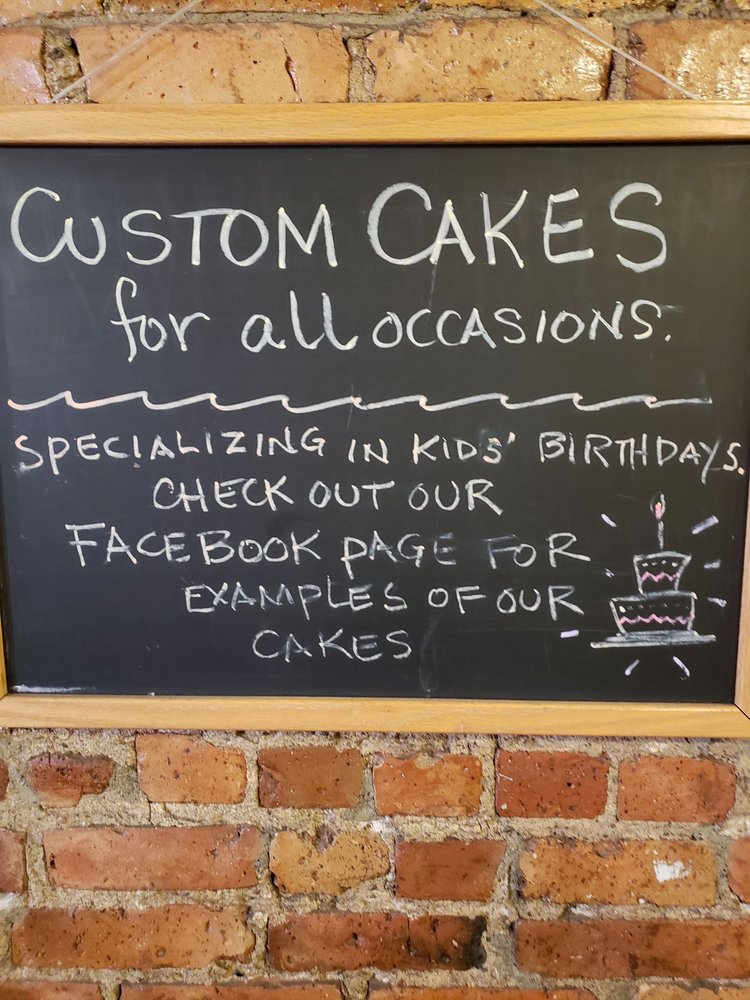 CUSTOM CAKES
for all OCCASIONS.
SPECIALIZING IN KIDS' BIRTHDAYS.
CHECK OUT OUR
FACEBOOK PAGE FOR
EXAMPLES OF OUR
CAKES